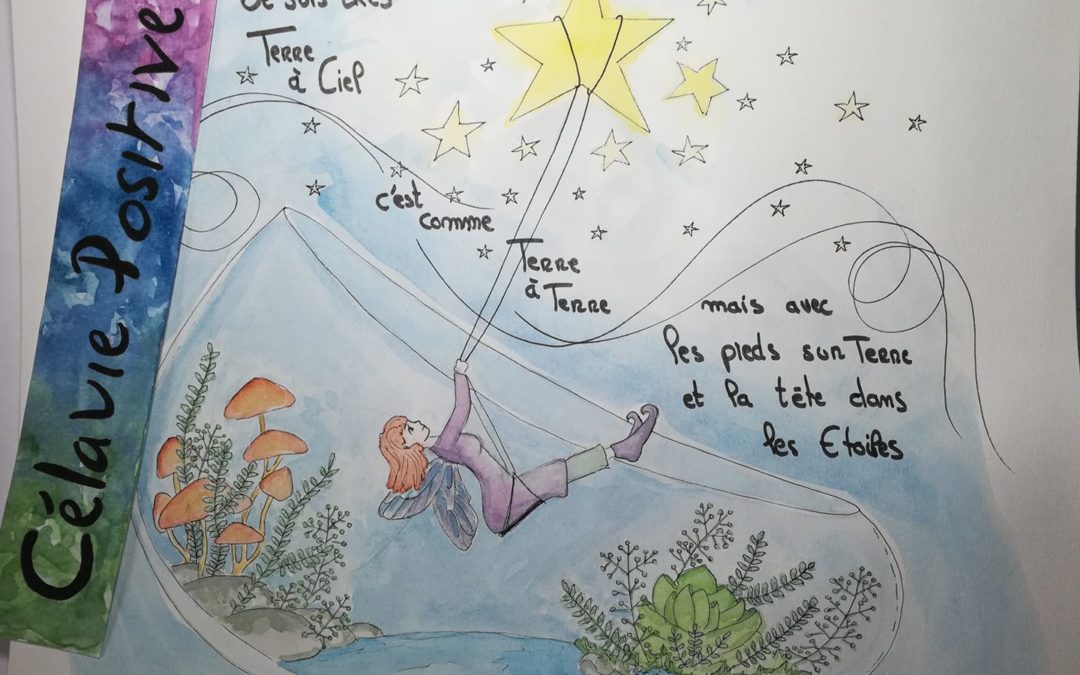 Je suis très
Terre
à Ciel
c'est
comme
Terre
à Terre
mais avec
les pieds sur Terre
et la tête dans
les Etoiles
Célavie Positive